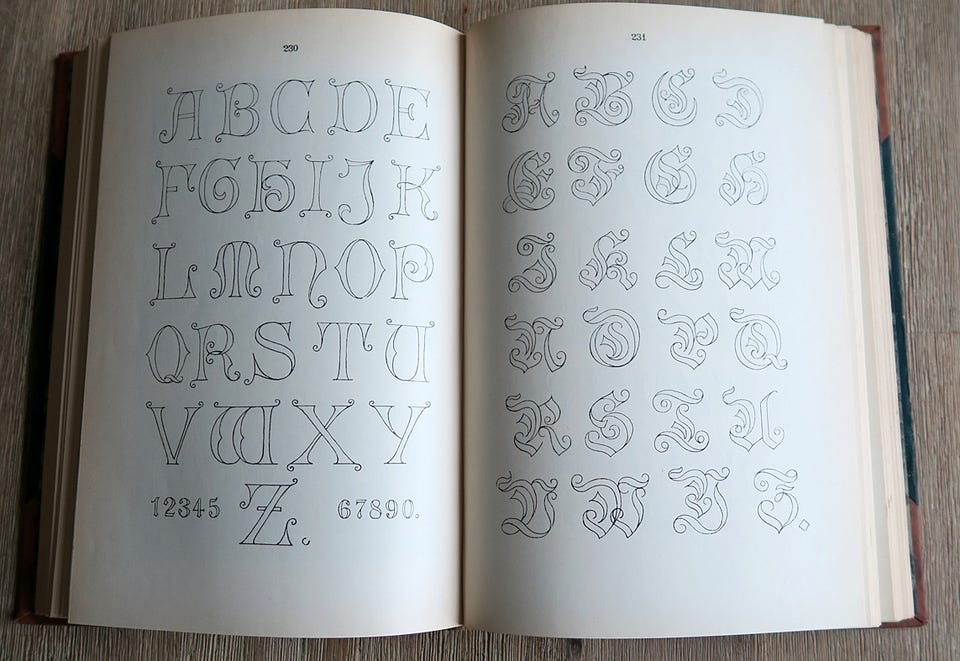 230
ABCDE
FGHIJK
LMNOP
QRSTU
VWXY
12345 Z. 67890.
231
A B C D
E F G H
I K L M
N O P Q
R S T U
V W Y Z.